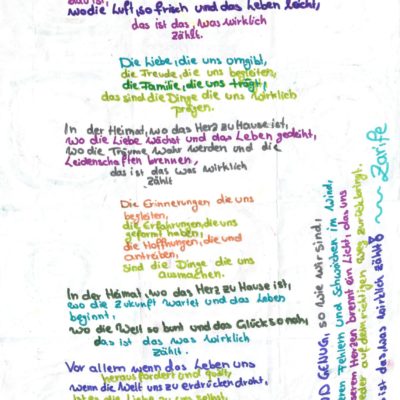 blau ist,
wo die Luft, so frisch und das Leben leicht,
das ist das, was wirklich
zählt.
Die Liebe, die uns umgibt,
die Freude, die uns begleiten,
die Familie, die uns trägt,
das sind die Dinge die uns wirklich
prägen.
In der Heimat, wo das Herz zu Hause ist,
wo die Liebe wächst und das Leben gedeiht,
wo die Träume wahr werden und die
Leidenschaften brennen,
das ist das was wirklich
zählt
Die Erinnerungen die uns
begleiten,
die Erfahrungen, die uns
geformt haben,
die Hoffnungen, die und
antreiben,
sind die Dinge die uns
ausmachen.
In der Heimat, wo das Herz zu Hause ist,
wo die Zukunft wartet und das Leben
beginnt,
wo die Welt so bunt und das Glück so nah,
das ist das was wirklich
zählt.
Vor allem wenn das Leben uns
herausfordert und
wenn die Welt uns zu erdrücken droht,
die Liebe zu uns selbst
ND GENUG, so wie wir sind,
eren Fehlern und Schwächen im Wind,
serem Herzen brennt ein Licht, das uns
eder auf dem richtigen Weg zurückbringt.
s ist das was wirklich zählt
~ Zarife